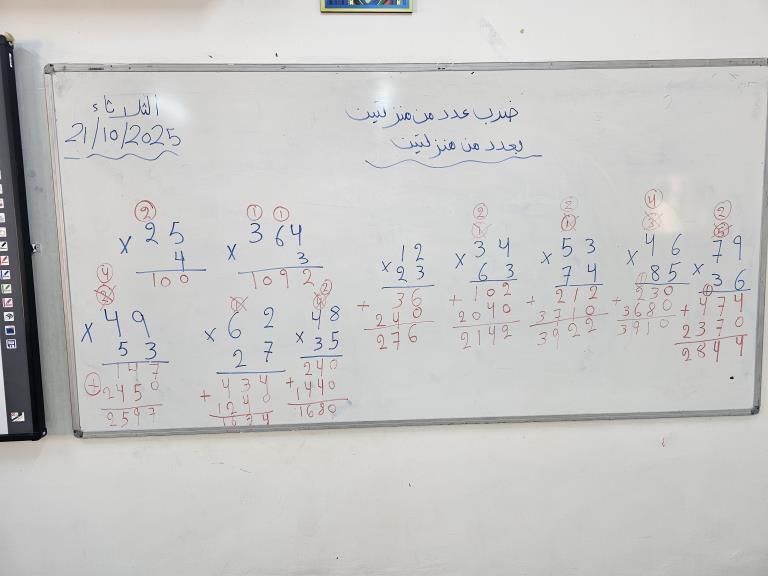 الثلاثاء
21/10/2025
ضرب عدد من منزلتين
بعدد من منزلتين
2
25
× 4
100
1 1
364
× 3
1092
12
× 23
36
+ 240
276
2
1
34
× 63
102
+ 2040
2142
2
1
53
× 74
212
+ 3710
3922
4
3
46
× 85
1
230
+ 3680
3910
2
5
79
× 36
1
474
+ 2370
2844
4
2
49
× 53
147
+ 2450
2597
1
62
× 27
434
+ 1240
1634
2
4
48
× 35
240
+ 1440
1680